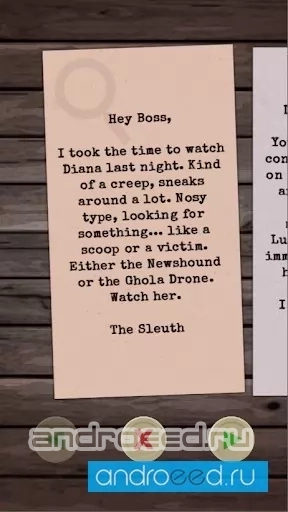 Hey Boss,
I took the time to watch
Diana last night. Kind
of a creep, sneaks
around a lot. Nosy
type, looking for
something... like a
scoop or a victim.
Either the Newshound
or the Ghola Drone.
Watch her.
The Sleuth
Yo
con
on
a
Lu
imm
h
I
androeed.ru
androeed.ru